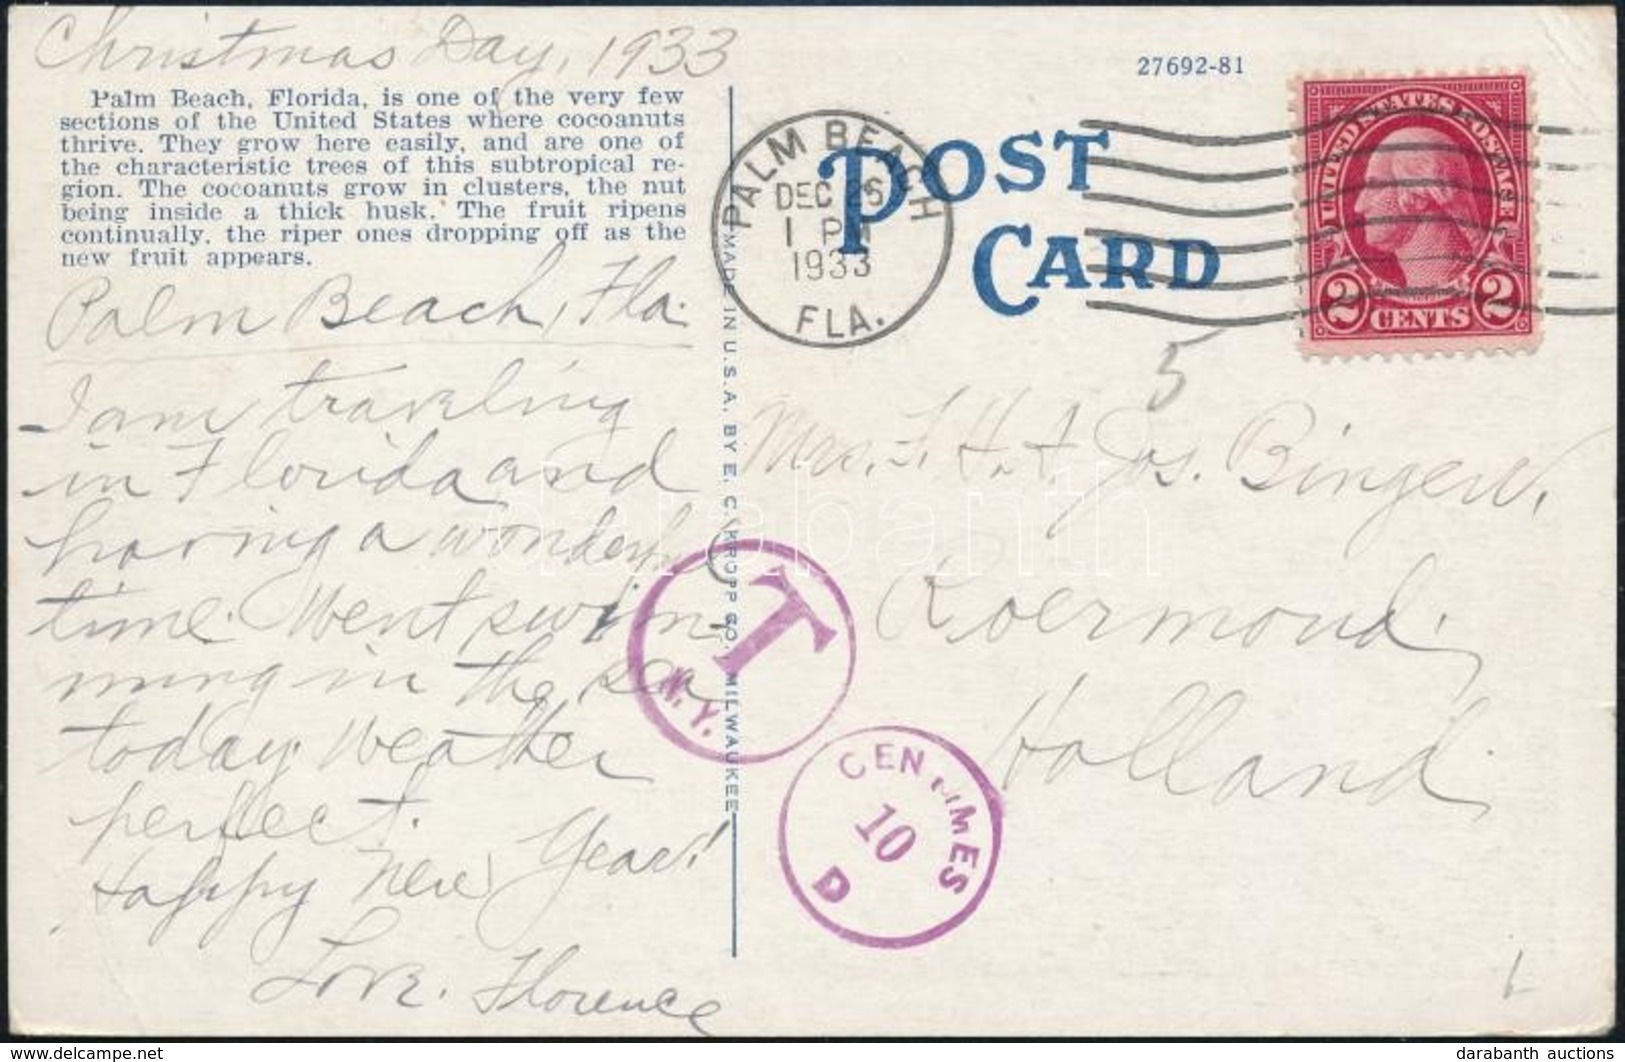 Christmas Day, 1933
Palm Beach, Florida, is one of the very few
sections of the United States where cocoanuts
thrive. They grow here easily, and are one of
the characteristic trees of this subtropical re-
gion. The cocoanuts grow in clusters, the nut
being inside a thick husk. The fruit ripens
continually, the riper ones dropping off as the
new fruit appears.
Palm Beach, Fla.
I am traveling
in Florida and
having a wonderful
time. Went swim
ming in the sea
today. Weather
perfect.
Happy New Year!
Love. Florence
MADE IN U.S.A. BY E. C. KROPP CO., MILWAUKEE
27692-81
POST
CARD
PALM BEACH
DEC 26
1 PM
1933
FLA.
UNITED STATES POSTAGE
2 CENTS 2
5
Mrs. F. H. A. Jos. Bingen,
Roermond,
Holland.
T
N.Y.
CENTIMES
10
D
darabanth
delcampe.net
darabanth auctions